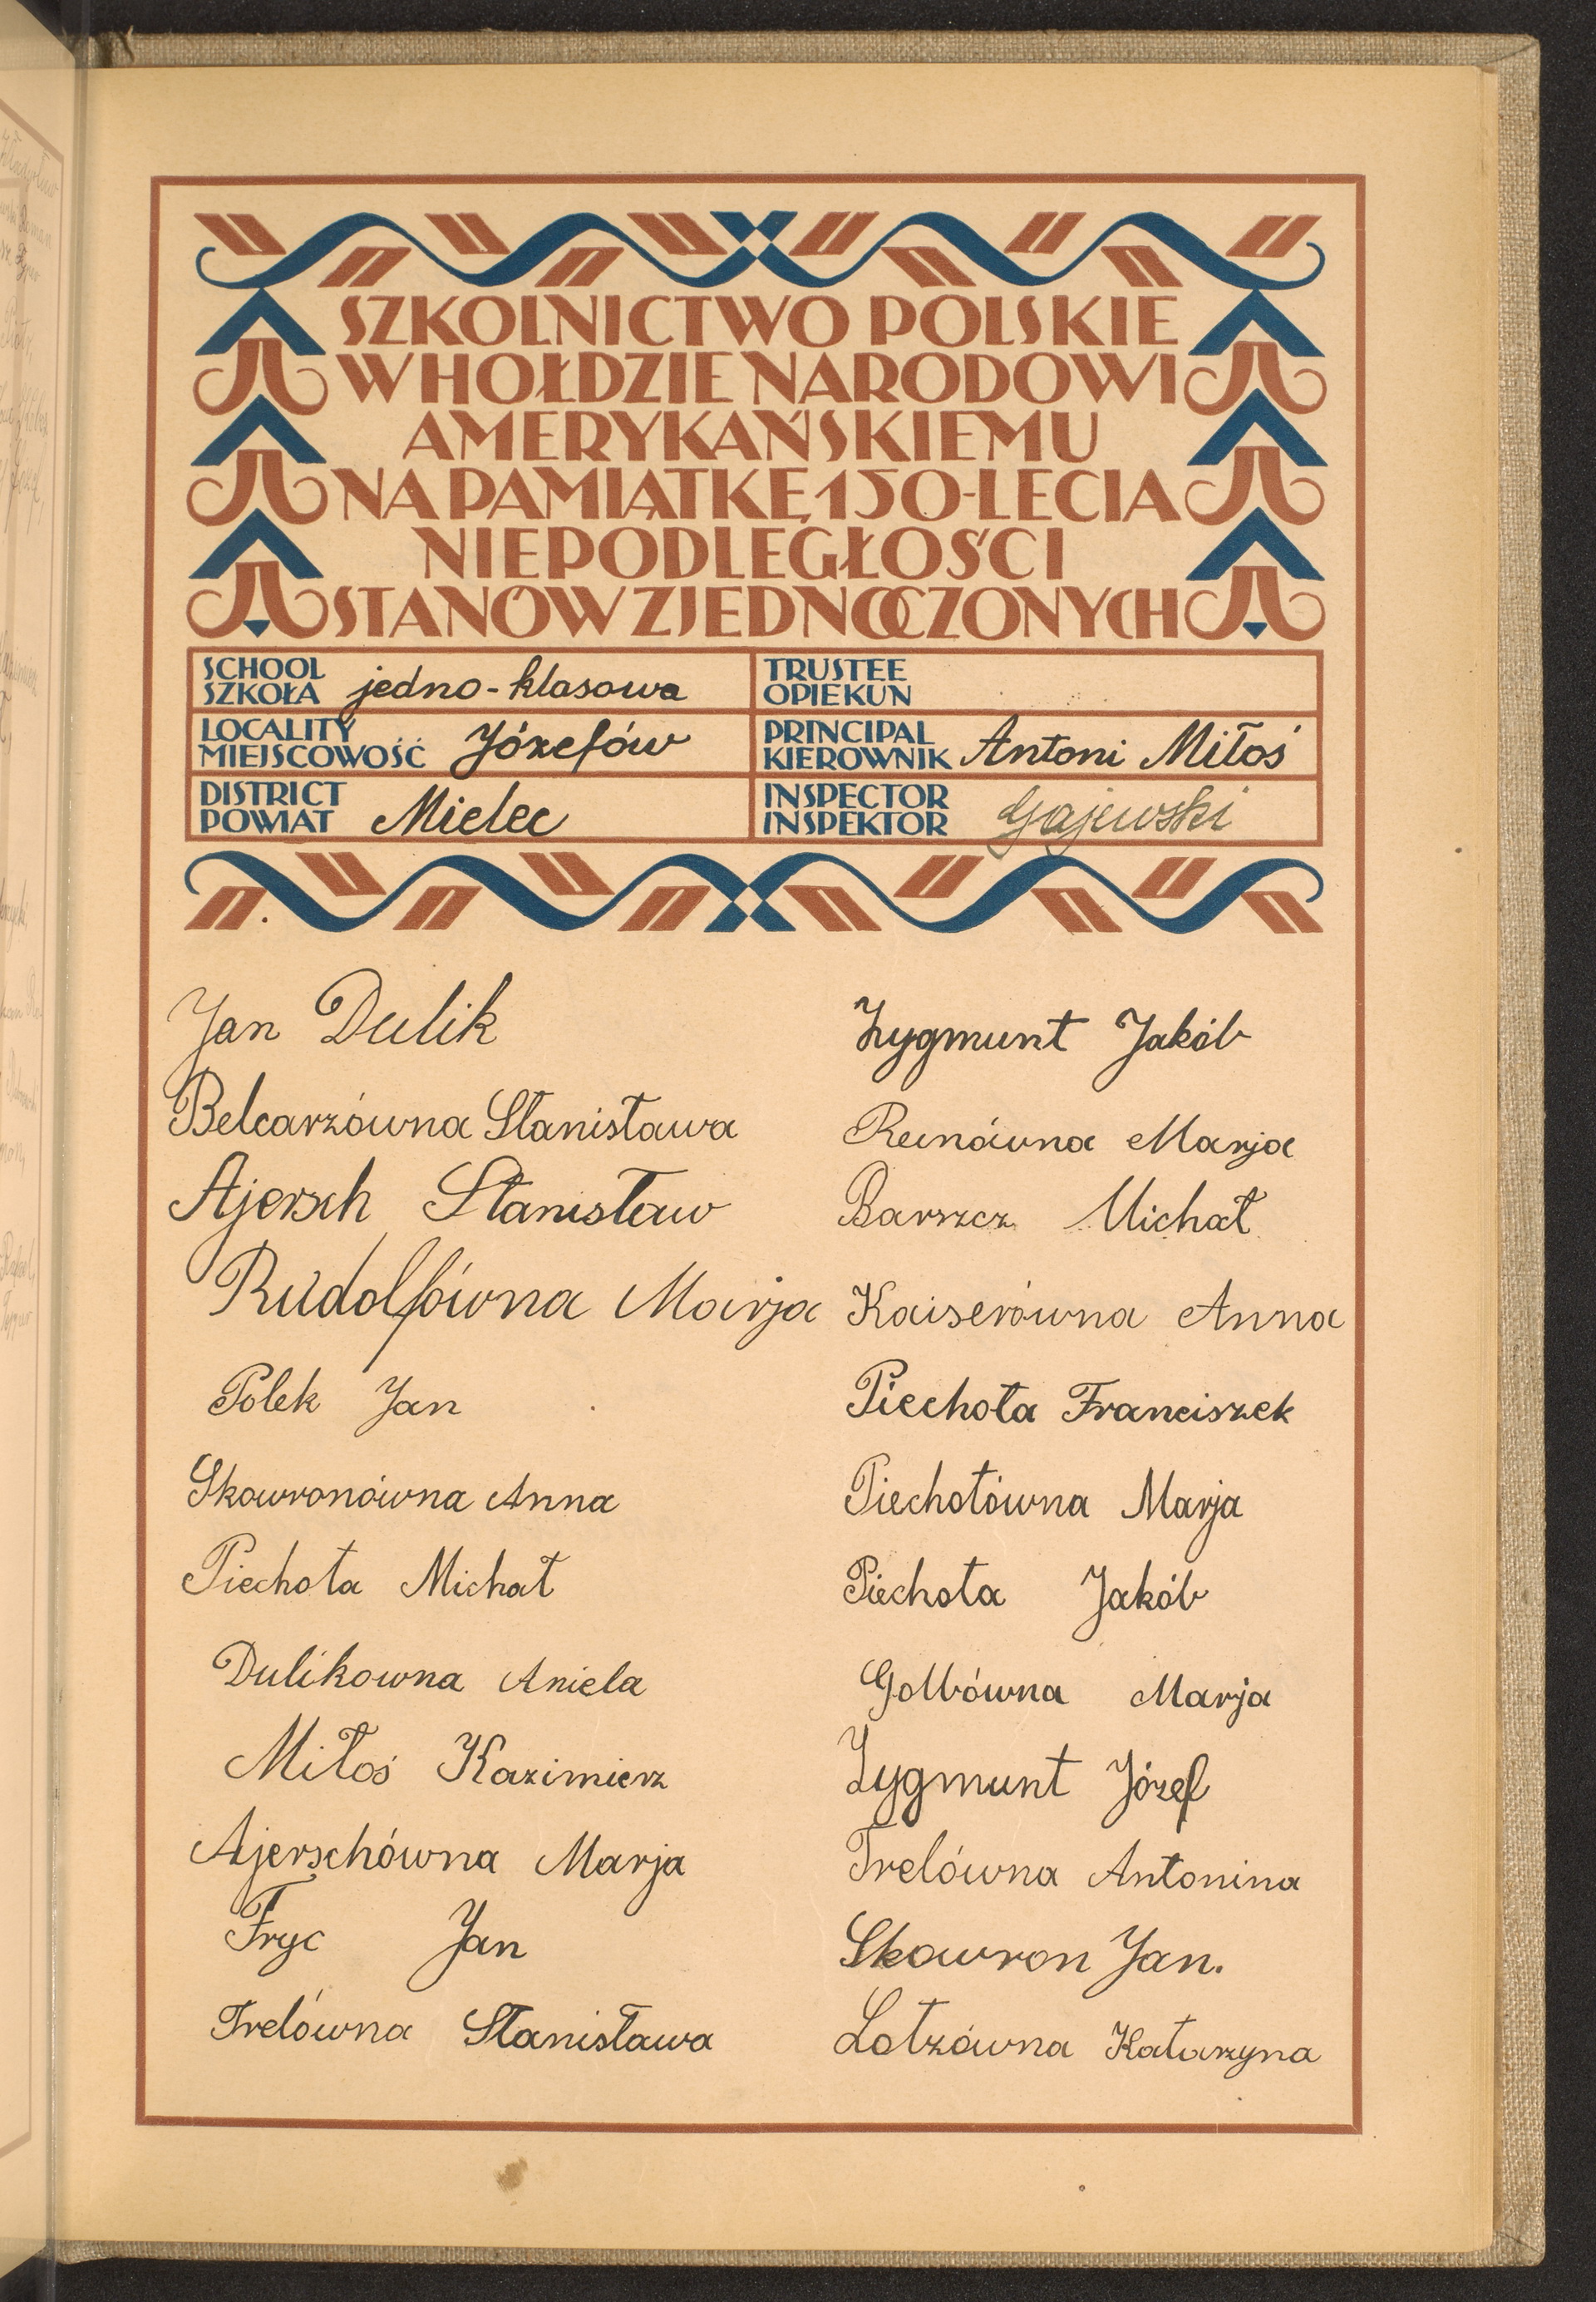 SZKOLNICTWO POLSKIE
W HOŁDZIE NARODOWI
AMERYKAŃSKIEMU
NA PAMIĄTKĘ 150-LECIA
NIEPODLEGŁOŚCI
STANÓW ZJEDNOCZONYCH
SCHOOL
SZKOŁA jedno-klasowa
TRUSTEE
OPIEKUN
LOCALITY
MIEJSCOWOŚĆ Józefów
PRINCIPAL
KIEROWNIK Antoni Miłoś
DISTRICT
POWIAT Mielec
INSPECTOR
INSPEKTOR Gajewski
Jan Dulik
Belcarzówna Stanisława
Ajersch Stanisław
Rudolfówna Marja
Polek Jan
Skowronówna Anna
Piechota Michał
Dulikowna Aniela
Miłoś Kazimierz
Ajerschówna Marja
Fryc Jan
Trelówna Stanisława
Zygmunt Jakób
Reinówna Marja
Barszcz Michał
Kaiserówna Anna
Piechota Franciszek
Piechotówna Marja
Piechota Jakób
Marja
Zygmunt Józef
Trelówna Antonina
Skowron Jan.
Lotzówna Katarzyna